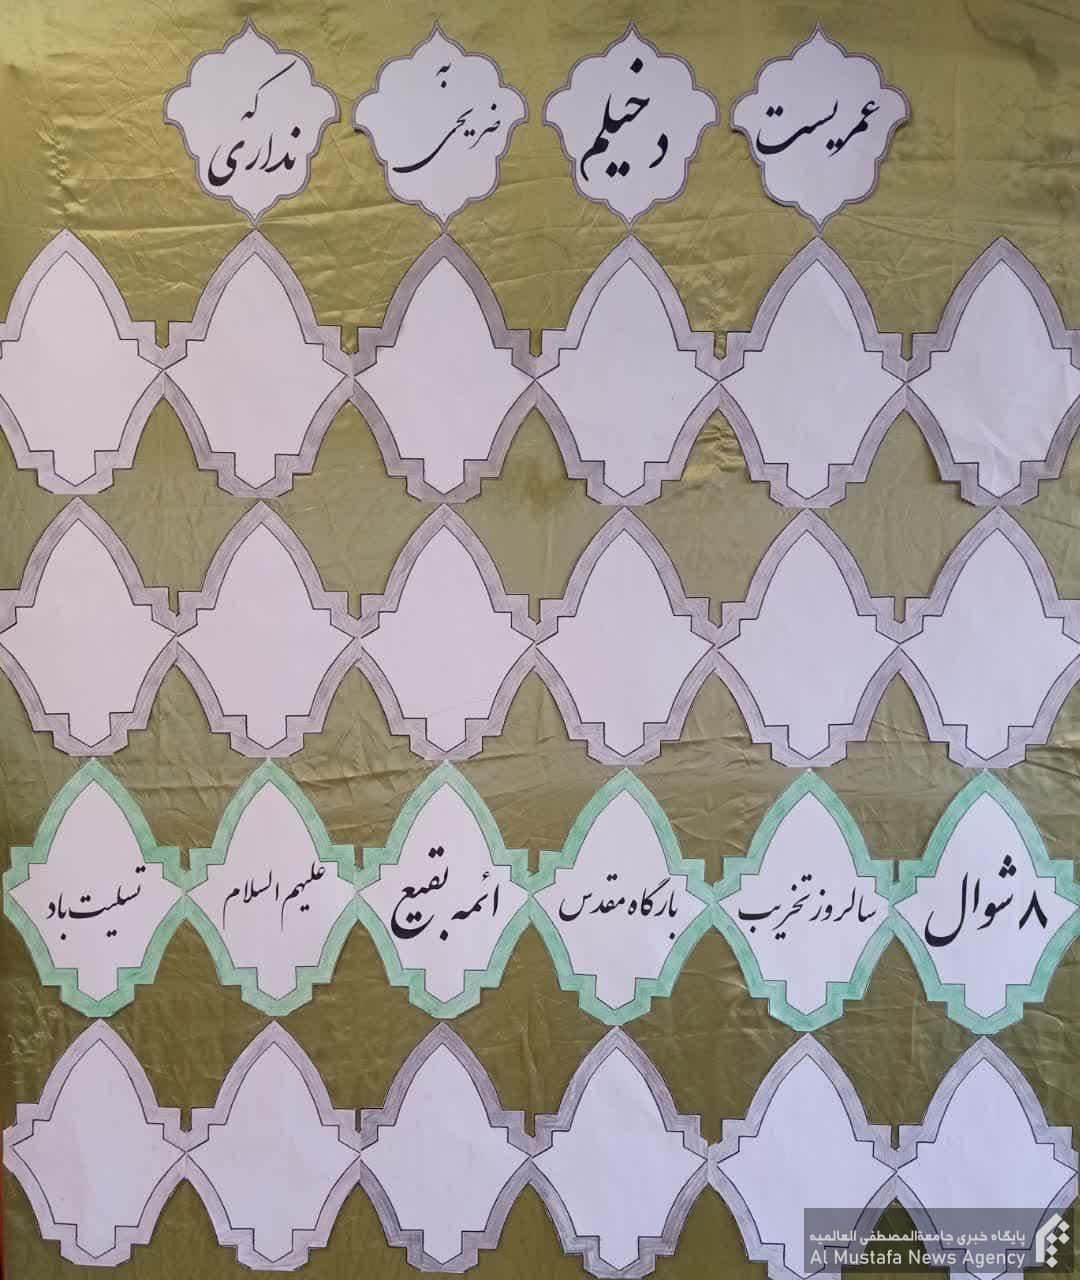 عمریست دخیلم به ضریحی که نداری
۸ شوال سالروز تخریب بارگاه مقدس ائمه بقیع علیهم السلام تسلیت باد
پایگاه خبری جامعةالمصطفی العالمیه
Al Mustafa News Agency